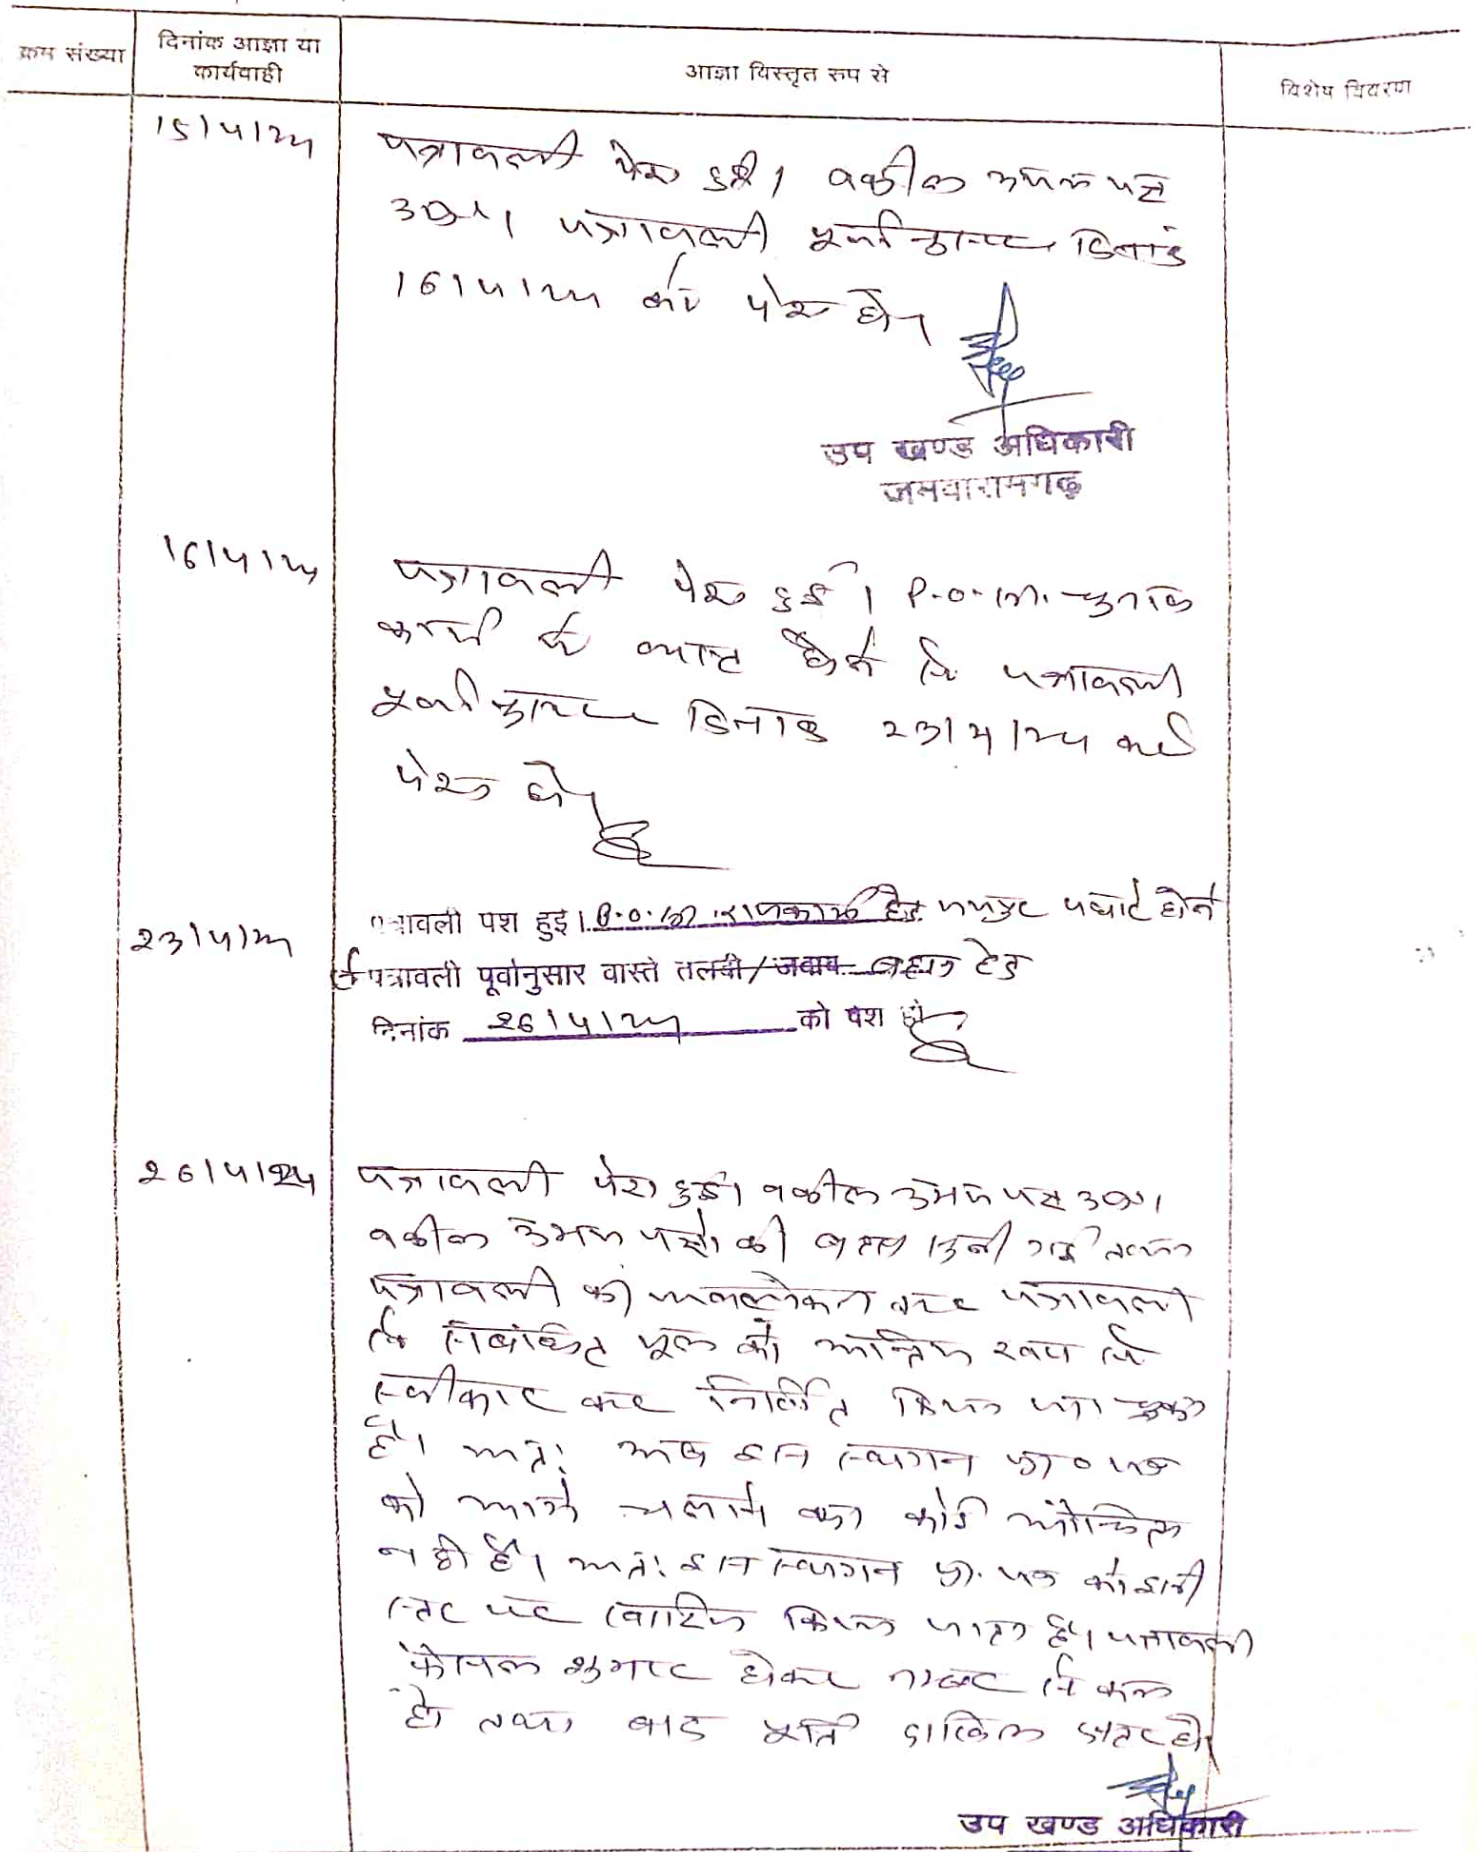 क्रम संख्या
दिनांक आज्ञा या
कार्यवाही
आज्ञा विस्तृत रुप से
विशेष विवरण
15/4/24
पत्रावली पेश हुई। वकील उभय पक्ष
उप०। पत्रावली पूर्वानुसार दिनांक
16/4/24 को पेश हो।
उप खण्ड अधिकारी
जमवारामगढ़
16/4/24
पत्रावली पेश हुई। P.O. चुनाव
कार्य में व्यस्त होने से पत्रावली
पूर्वानुसार दिनांक 23/4/24 को
पेश हो।
23/4/24
पत्रावली पेश हुई। P.O. राजकार्य हेतु जयपुर पधारे होने
से पत्रावली पूर्वानुसार वास्ते तलबी/जवाब बहस हेतु
दिनांक 26/4/24 को पेश हो
26/4/24
पत्रावली पेश हुई। वकील उभय पक्ष उप०।
वकील उभय पक्षों की बहस सुनी गई तथा
पत्रावली का अवलोकन कर पत्रावली
से संबंधित मूल को अन्तिम रूप से
स्वीकार कर निर्णित किया जा चुका
है। अतः अब इस स्थगन प्रा० पत्र
को आगे चलाने का कोई औचित्य
नहीं है। अतः इस स्थगन प्रा. पत्र को इसी
स्तर पर खारिज किया जाता है। पत्रावली
फैसल शुमार होकर नम्बर से कम
हो तथा बाद पूर्ति दाखिल दफ्तर हो।
उप खण्ड अधिकारी